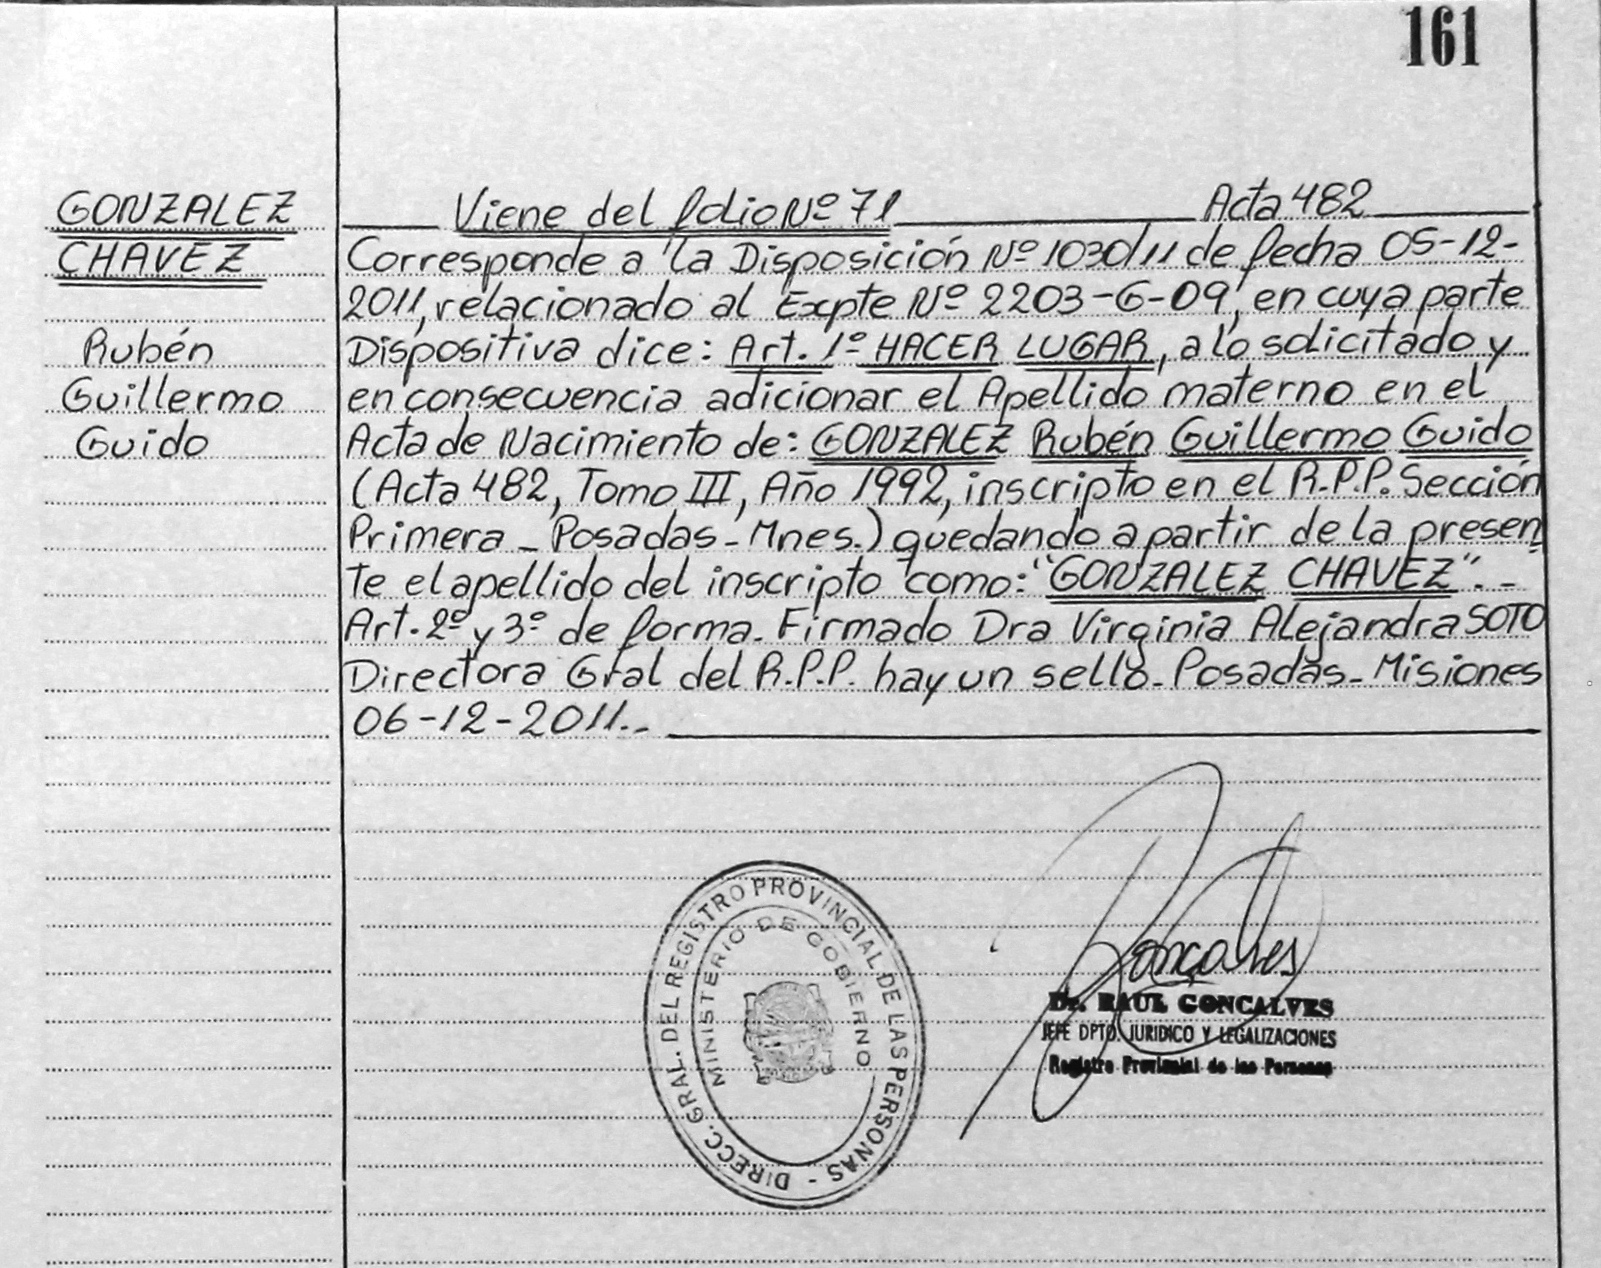 161
GONZALEZ
CHAVEZ
Rubén
Guillermo
Guido
Viene del folio Nº 71 Acta 482
Corresponde a la Disposición Nº 1030/11 de fecha 05-12-
2011, relacionado al Expte Nº 2203-G-09, en cuya parte
Dispositiva dice: Art. 1º HACER LUGAR, a lo solicitado y
en consecuencia adicionar el Apellido materno en el
Acta de Nacimiento de: GONZALEZ Rubén Guillermo Guido
(Acta 482, Tomo III, Año 1992, inscripto en el R.P.P. Sección
Primera - Posadas - Mnes.) quedando a partir de la presen
te el apellido del inscripto como: "GONZALEZ CHAVEZ". -
Art. 2º y 3º de forma. Firmado Dra Virginia Alejandra SOTO
Directora Gral del R.P.P. hay un sello. Posadas - Misiones
06-12-2011.-
DIRECC. GRAL. DEL REGISTRO PROVINCIAL DE LAS PERSONAS -
MINISTERIO DE GOBIERNO
Goncalves
Dr. RAUL GONCALVES
JEFE DPTO. JURIDICO Y LEGALIZACIONES
Registro Provincial de las Personas